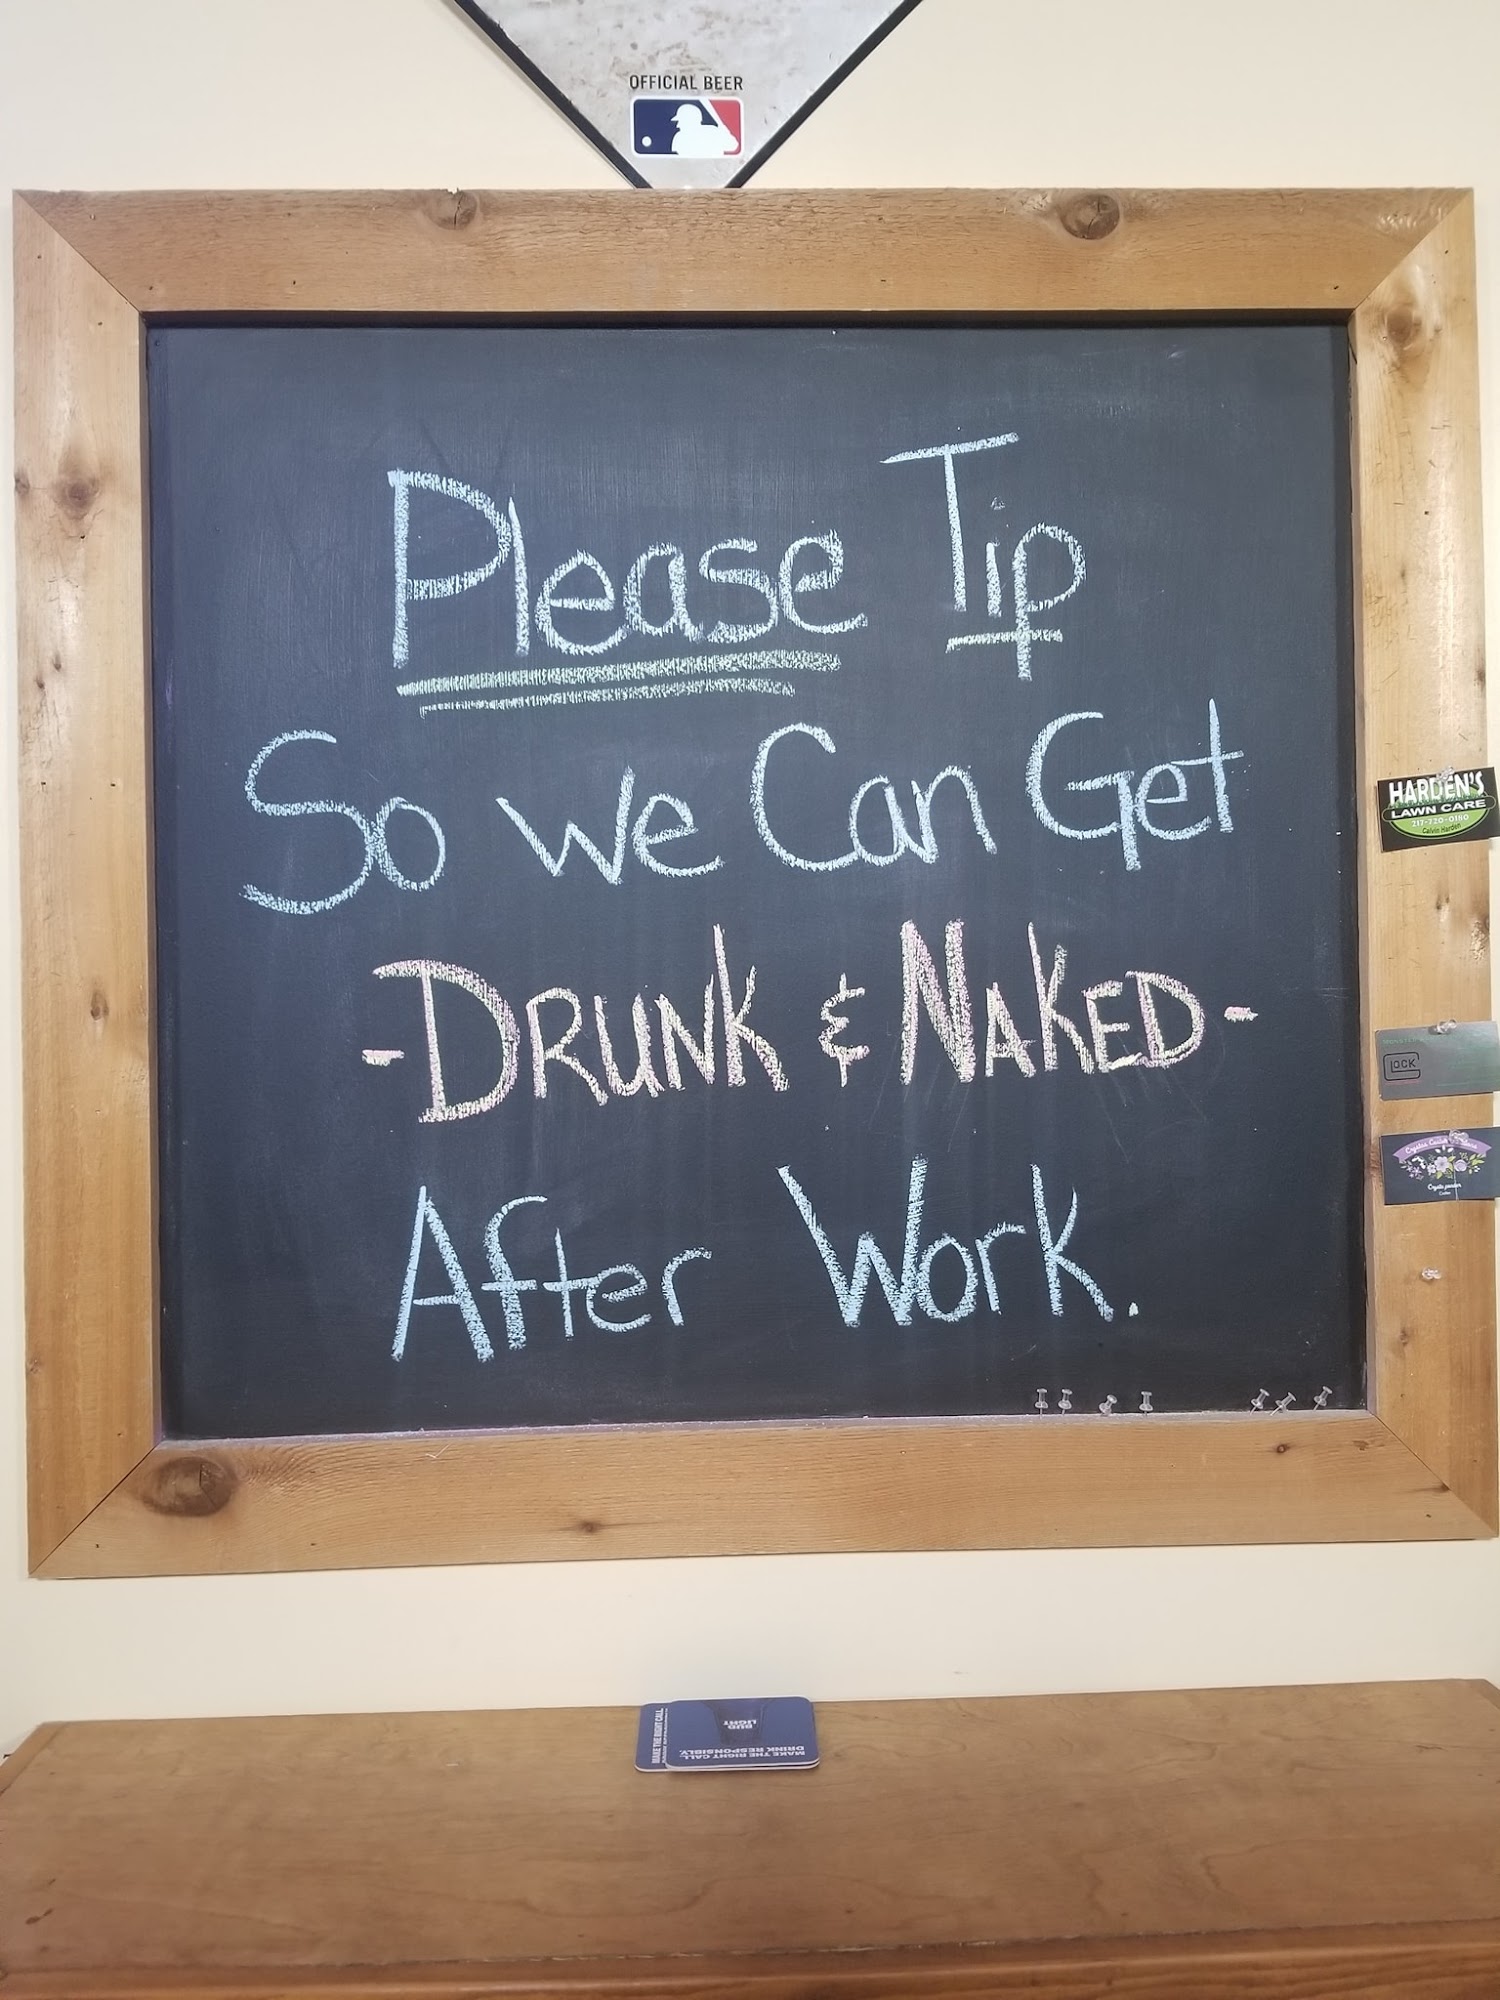 OFFICIAL BEER
Please Tip
So we Can Get
-DRUNK & NAKED-
After Work.
HARDEN'S
LAWN CARE
217-720-0180
Calvin Harden
GLOCK
MAKE THE RIGHT CALL
BUD
LIGHT
MAKE THE RIGHT CALL.
DRINK RESPONSIBLY.